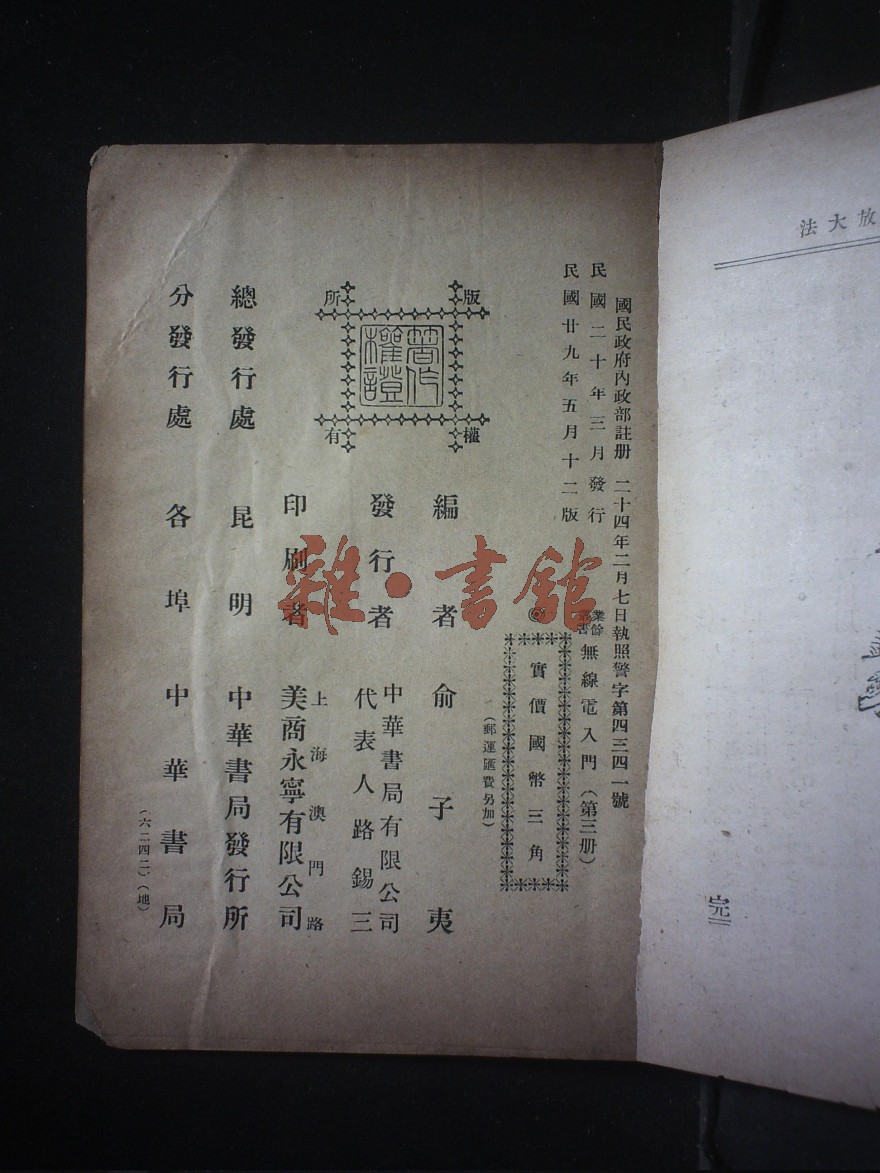 國民政府內政部註册　二十四年二月七日執照警字第四三四一號
民國二十年三月發行
民國廿九年五月十二版
業餘
叢書
無線電入門（第三册）
◎實價國幣三角
（郵運匯費另加）
編者　俞子夷
發行者　中華書局有限公司
代表人路錫三
印刷者　上海澳門路
美商永寧有限公司
版權所有
著作權證
總發行處　昆明　中華書局發行所
分發行處　各埠　中華書局
（六二四二）（地）
雜·書館
放大法
完